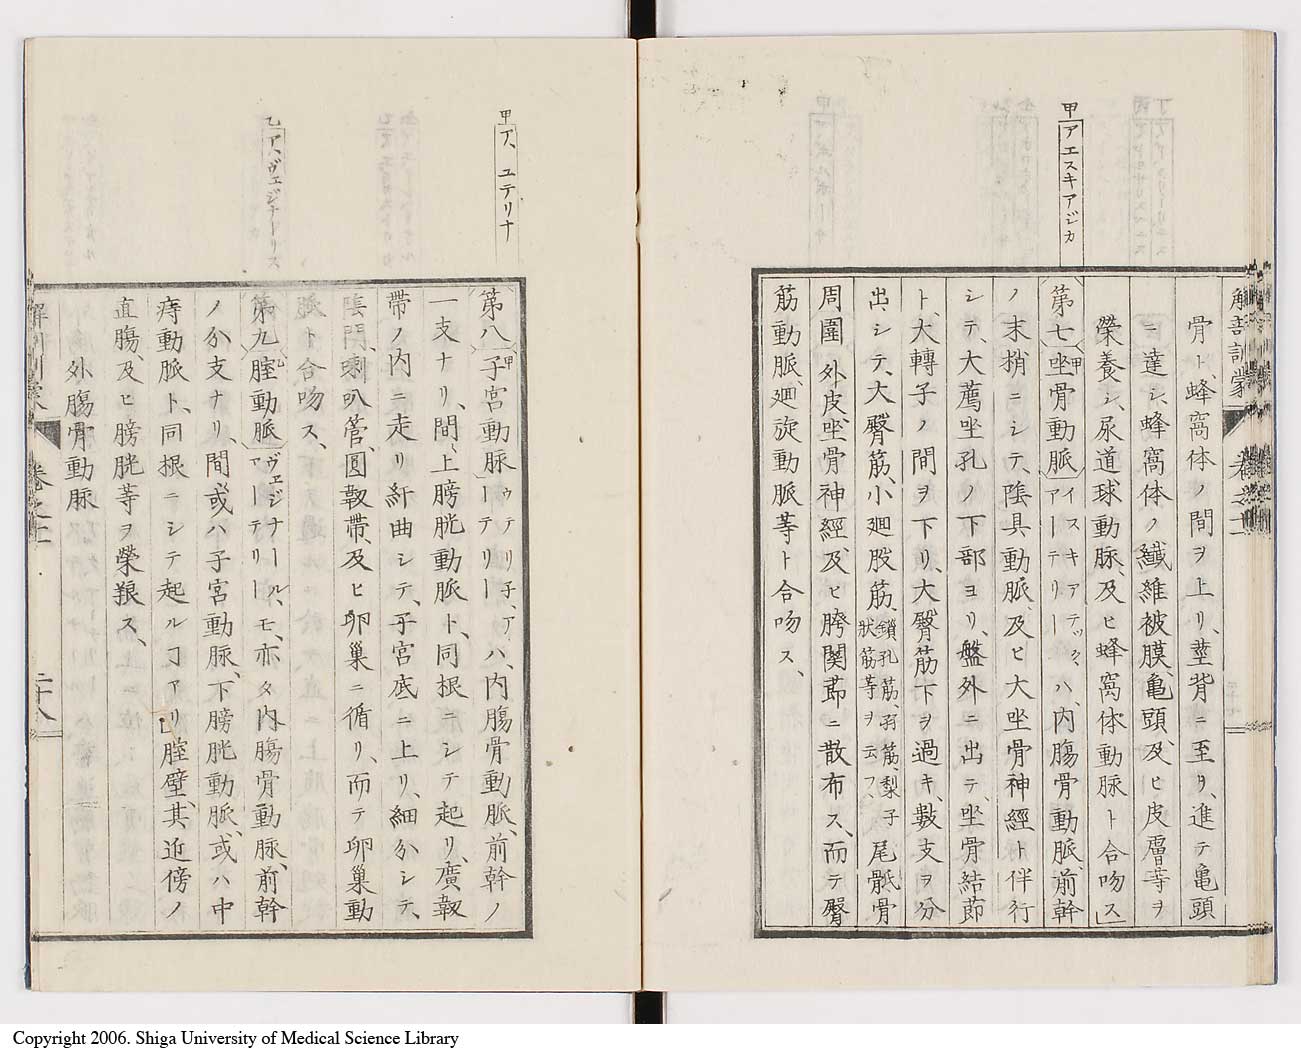 解剖訓蒙
卷之
甲
アエスキアジカ
骨ト、蜂窩体ノ間ヲ上リ、莖背ニ至リ、進テ亀頭
ニ達シ、蜂窩体ノ纖維被膜、亀頭、及ヒ皮膚等ヲ
榮養シ、尿道球動脈、及ヒ蜂窩体動脈ト合吻ス」
第七甲坐骨動脈イスキアテック、アーテリーハ、内腸骨動脈、前幹
ノ末梢ニシテ、陰具動脈、及ヒ大坐骨神經ト伴行
シテ、大薦坐孔ノ下部ヨリ、盤外ニ出テ、坐骨結節
ト、大轉子ノ間ヲ下リ、大臀筋下ヲ過キ、數支ヲ分
出シテ、大臀筋、小廻股筋、鎖孔筋、羽筋、梨子状筋等ヲ云フ、尾骶骨
周圍外皮、坐骨神經、及ヒ胯関節ニ散布ス、而テ臀
筋動脈、廻旋動脈等ト合吻ス、
甲
ア、ユテリナ
乙
ア、ヴェジナーリス
第八甲子宮動脈ウテリ子、アーテリーハ、内腸骨動脈、前幹ノ
一支ナリ、間、上膀胱動脈ト、同根ニシテ起リ、廣靱
帶ノ内ニ走リ紆曲シテ、子宮底ニ上リ、細分シテ、
陰門、喇叭管、圓靱帶、及ヒ卵巢ニ循リ、而テ卵巢動
脈ト合吻ス、
第九乙腟動脈ヴェジナール、アーテリーモ、亦タ内腸骨動脈、前幹
ノ分支ナリ、間或ハ子宮動脈、下膀胱動脈、或ハ中
痔動脈ト、同根ニシテ起ルヿアリ、腟壁、其近傍ノ
直腸、及ヒ膀胱等ヲ榮狼ス、
外腸骨動脈
卷之
二十八
Copyright 2006. Shiga University of Medical Science Library